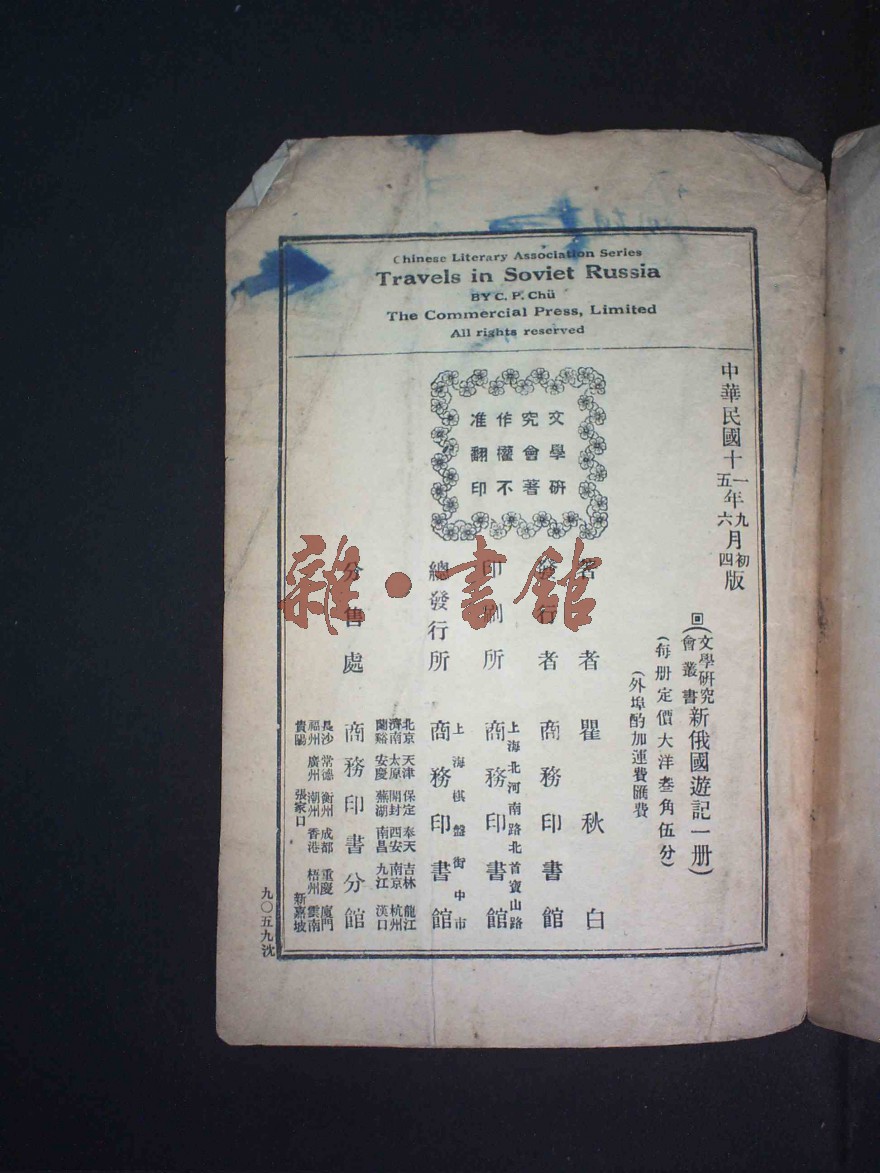 Chinese Literary Association Series
Travels in Soviet Russia
BY C. P. Chü
The Commercial Press, Limited
All rights reserved
中華民國十一年九月初版
五六四
回(文學研究會叢書新俄國遊記一册)
(每册定價大洋叁角伍分)
(外埠酌加運費匯費)
文學研
究會著
作權不
准翻印
著者 瞿秋白
發行者 商務印書館
印刷所 商務印書館
上海北河南路北首寶山路
總發行所 商務印書館
上海棋盤街中市
分售處 商務印書分館
北京 天津 保定 奉天 吉林 龍江
濟南 太原 開封 西安 南京 杭州
蘭谿 安慶 蕪湖 南昌 九江 漢口
長沙 常德 衡州 成都 重慶 廈門
福州 廣州 潮州 香港 梧州 雲南
貴陽 張家口 新嘉坡
九〇五九沈
雜·書館